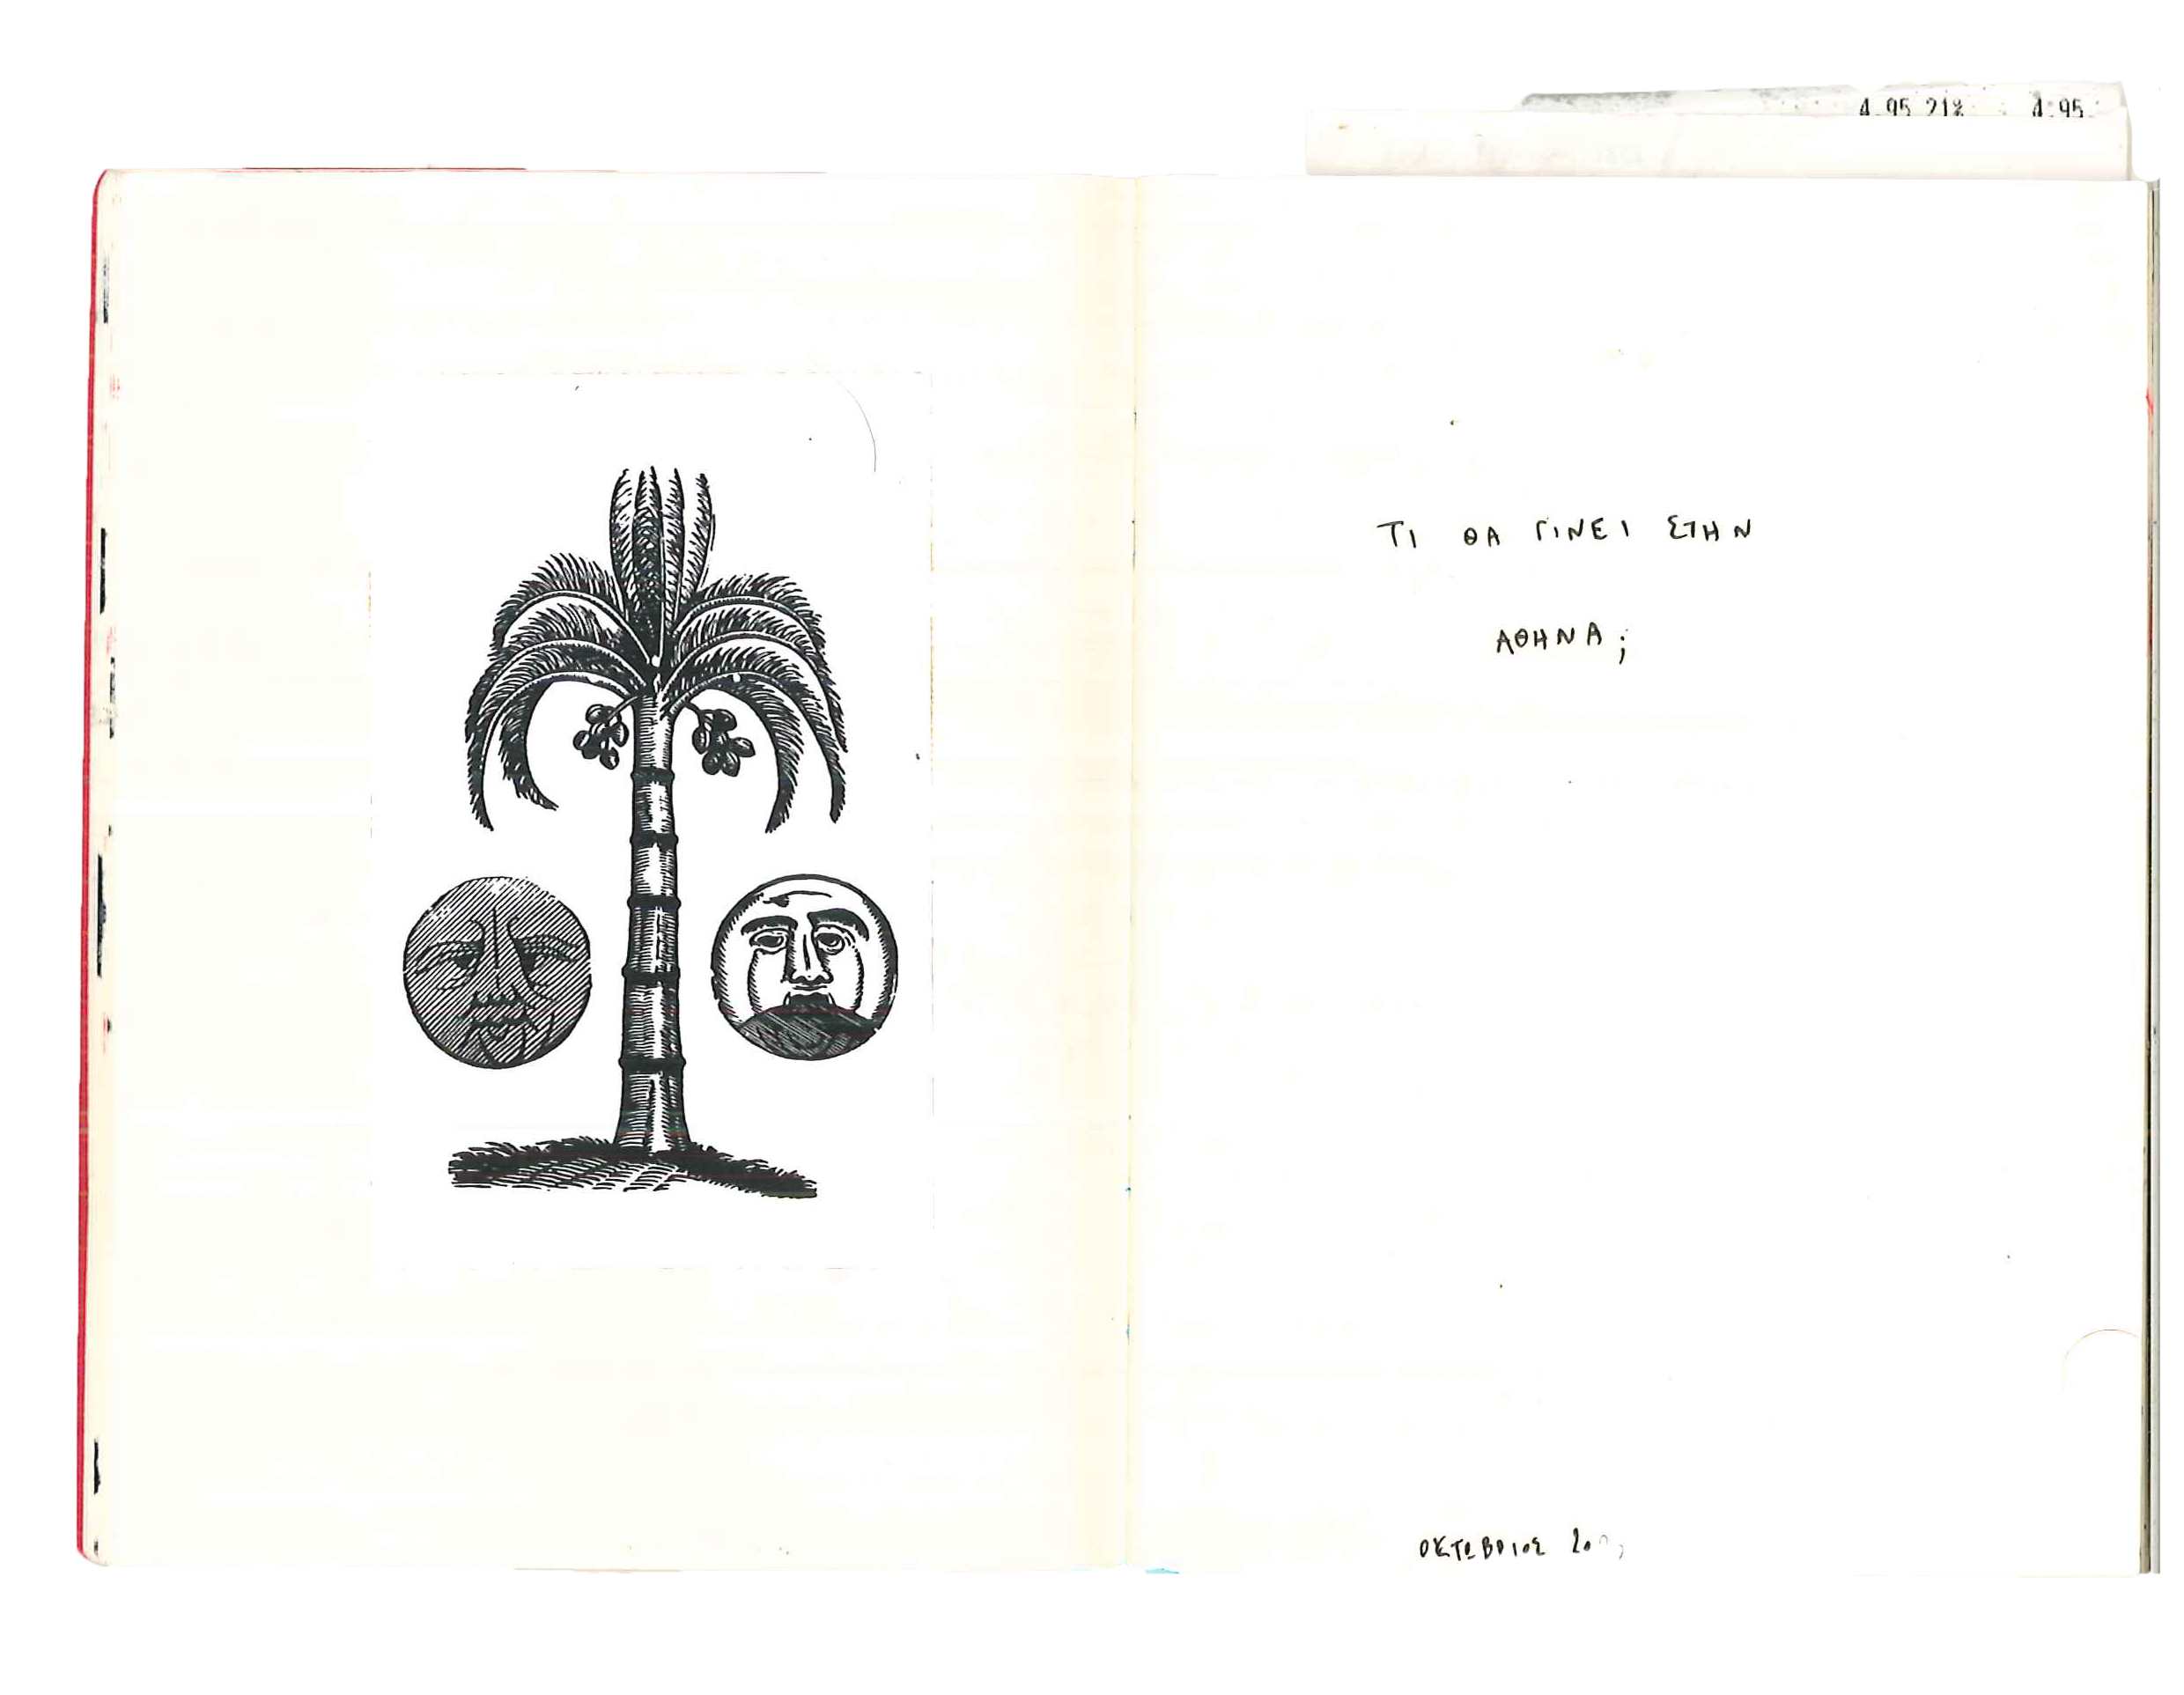 4.95 21% 4.95
ΤΙ ΘΑ ΓΙΝΕΙ ΣΤΗΝ
ΑΘΗΝΑ;
ΟΚΤΩΒΡΙΟΣ